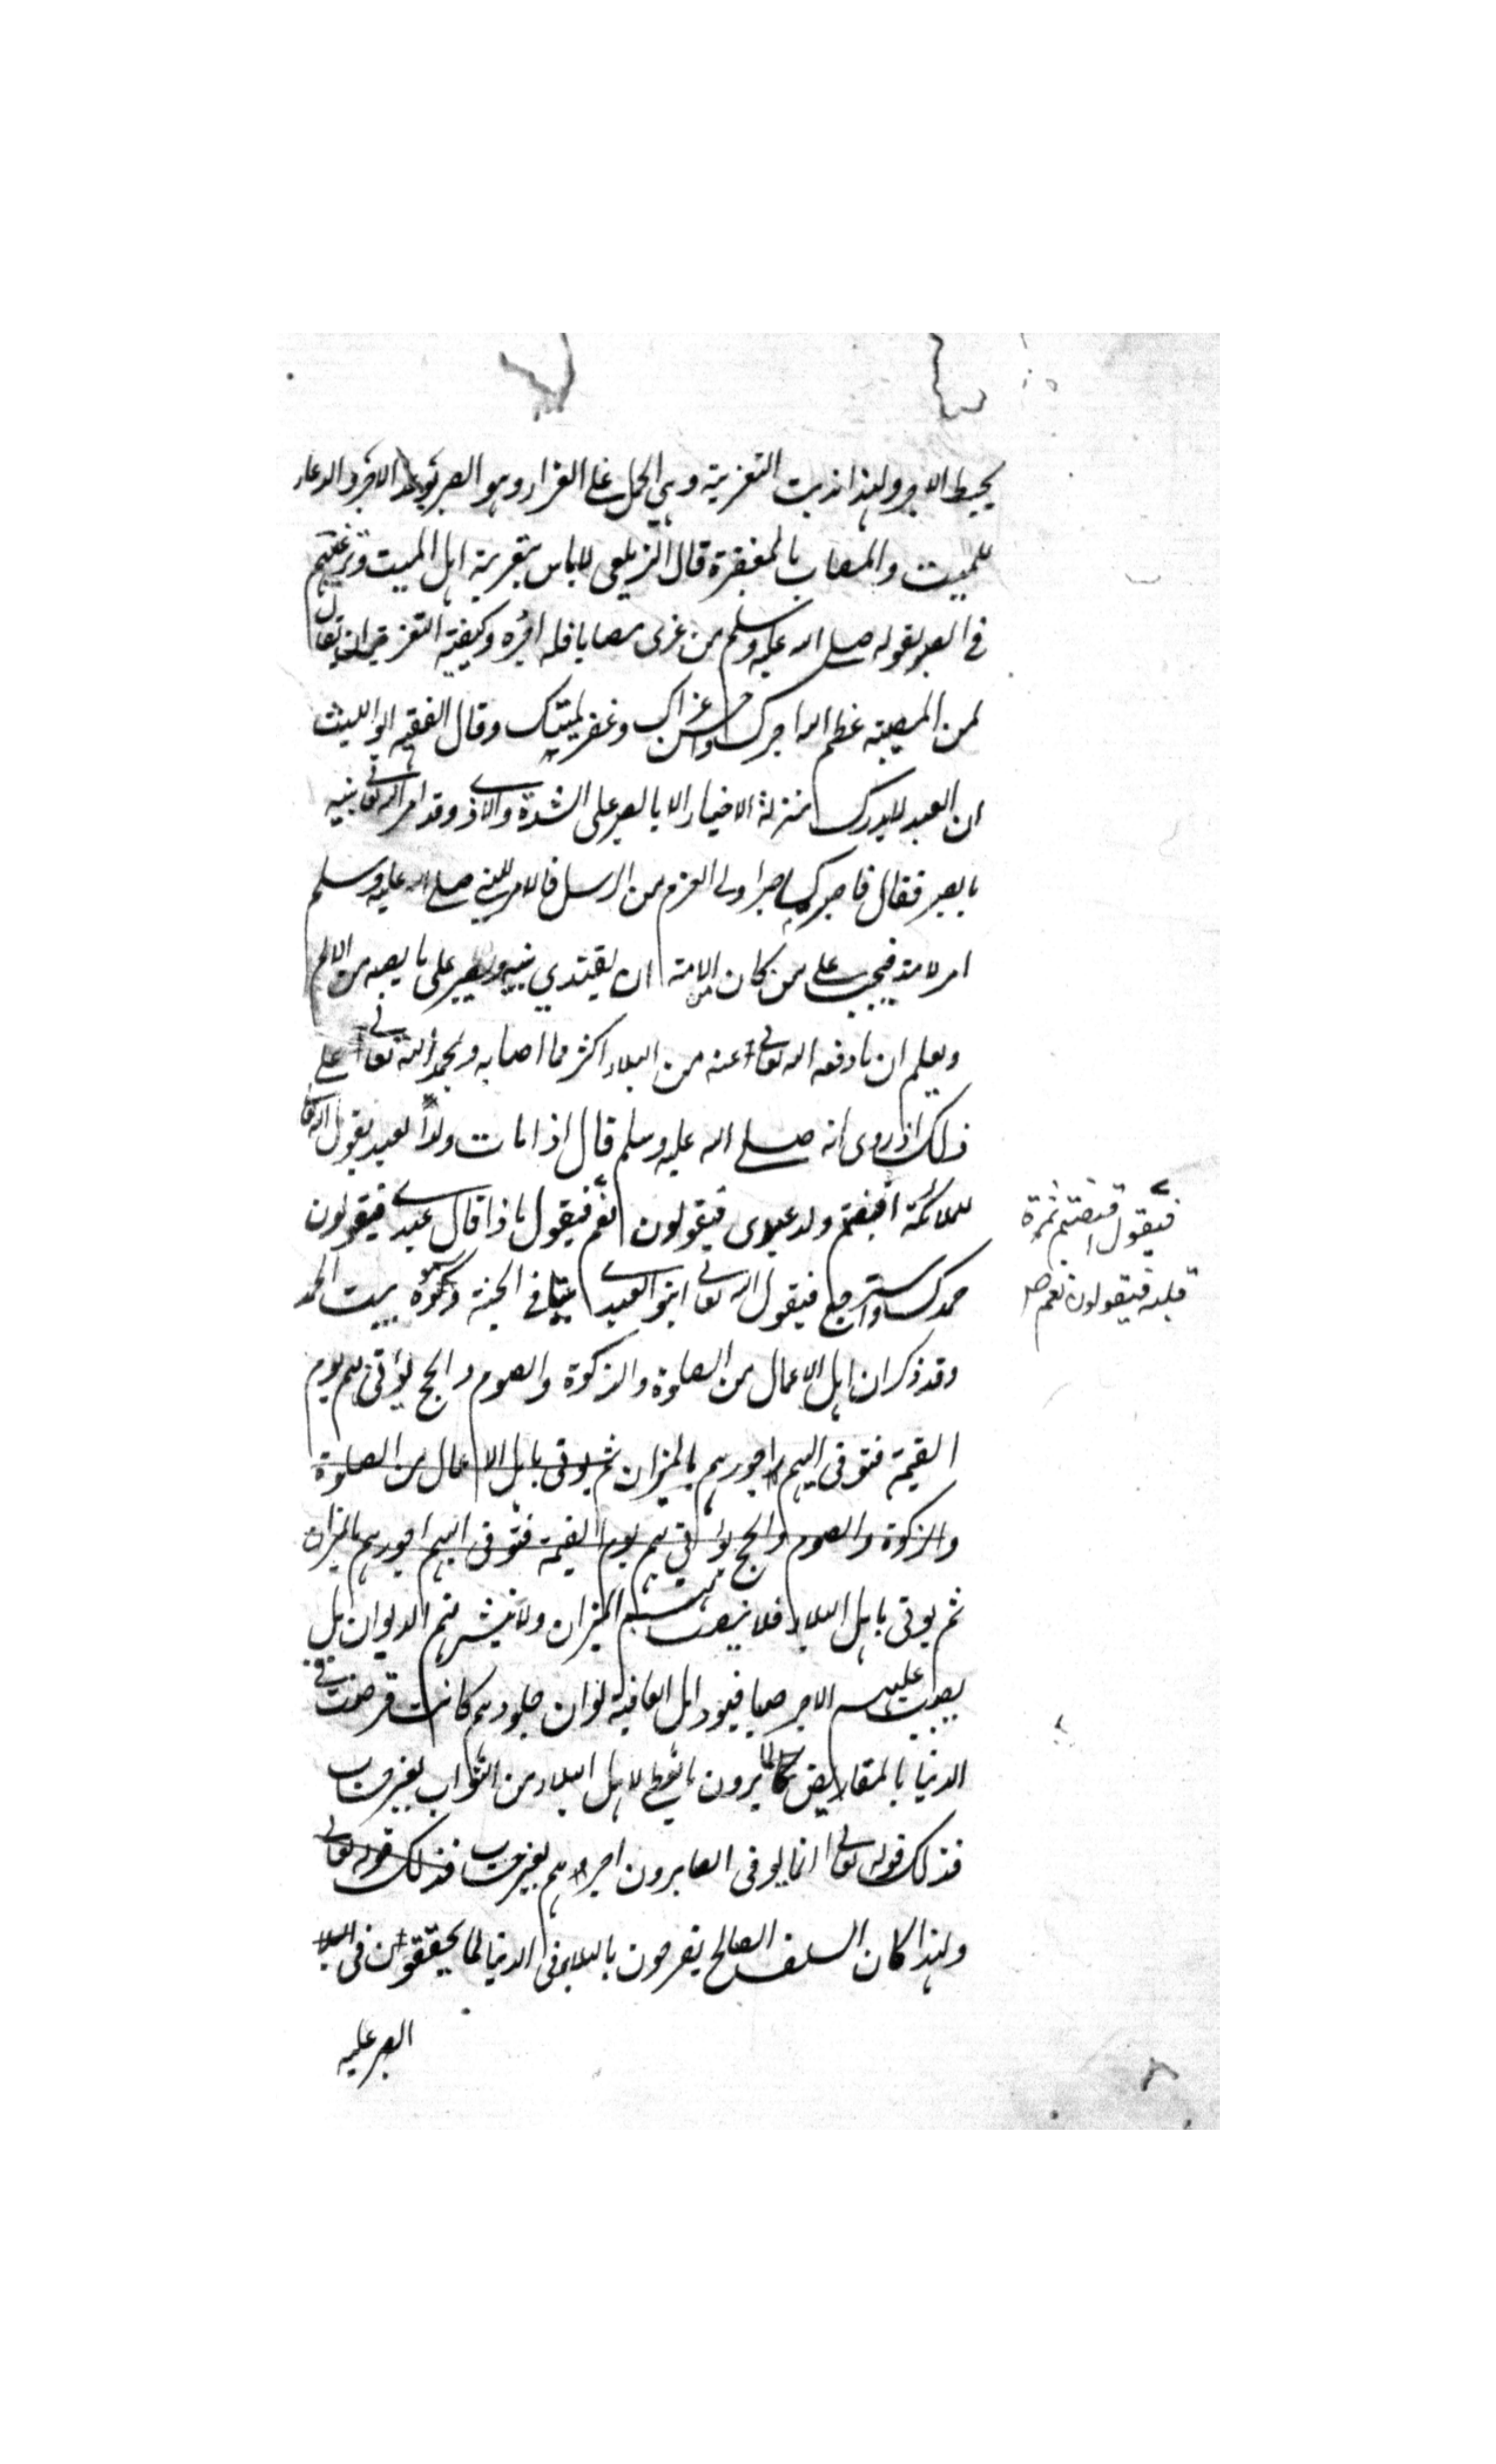 يحبط الاجر ولهذا ندبت التعزية وهي الحمل على العزاء وهو الصبر بوعد الاجر والدعاء
للميت والمصاب بالمغفرة قال الزيلعي لا باس بتعزية اهل الميت وترغيبهم
في الصبر لقوله صلى الله عليه وسلم من عزى مصابا فله اجره وكيفية التعزية ان يقال
لمن المصيبة عظم الله اجرك واحسن عزاك وغفر لميتك وقال الفقيه ابو الليث
ان العبد لا يدرك منزلة الاخيار الا بالصبر على الشدة والاذى وقد امر الله تعالى نبيه
بالصبر فقال فاصبر كما صبر اولى العزم من الرسل فالامر للنبي صلى الله عليه وسلم
امر لامته فيجب على من كان من الامة ان يقتدي بنبيه ويصبر على ما يصيبه من الالم
ويعلم ان ما دفعه الله تعالى عنه من البلاء اكثر مما اصابه ويحمد الله تعالى على
ذلك اذ روى انه صلى الله عليه وسلم قال اذا مات ولد العبد يقول الله تعالى
للملائكة اقبضتم ولد عبدى فيقولون نعم فيقول ماذا قال عبدي فيقولون
فيقول اقبضتم ثمرة
قلبه فيقولون نعم صح
حمدك واسترجع فيقول الله تعالى ابنوا لعبدي بيتا في الجنة وسموه بيت الحمد
وقد ذكر ان اهل الاعمال من الصلوة والزكوة والصوم والحج يؤتى بهم يوم
القيمة فتوفى اليهم اجورهم بالميزان ثم يوتى باهل الاعمال من الصلوة
والزكوة والصوم والحج يؤتى بهم يوم القيمة فتوفى اليهم اجورهم بالميزان
ثم يوتى باهل البلاء فلا ينصب لهم الميزان ولا ينشر لهم الديوان بل
يصب عليهم الاجر صبا فيود اهل العافية لو ان جلودهم كانت قرضت في
الدنيا بالمقاريض لما يرون ما يعطى لاهل البلاء من الثواب بغير حساب
فذلك قوله تعالى انما يوفى الصابرون اجرهم بغير حساب فذلك قوله تعالى
ولهذا كان السلف الصالح يفرحون بالبلاء في الدنيا لما يحققون في
الصبر عليه